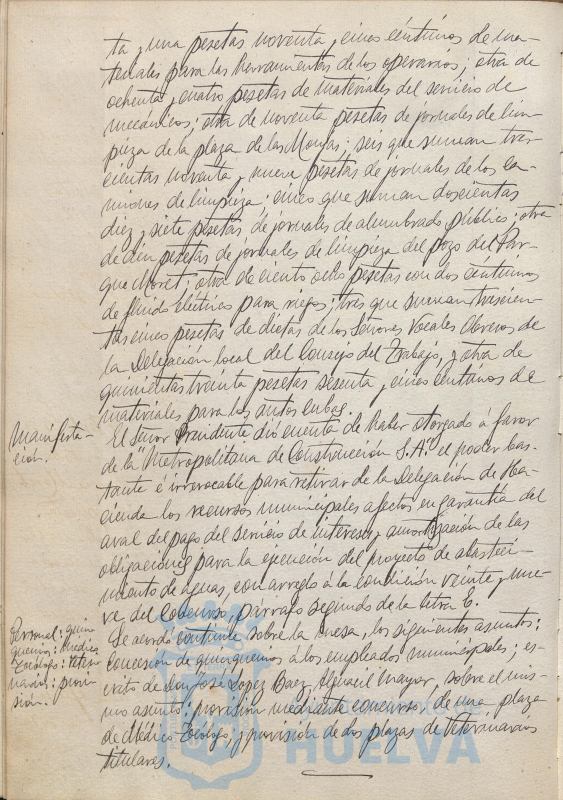 ta y una pesetas noventa y cinco céntimos de ma-
teriales para las herramientas de los operarios; otra de
ochenta y cuatro pesetas de materiales del servicio de
mecánicos; otra de noventa pesetas de jornales de lim-
pieza de la plaza de las Monjas; seis que suman tres-
cientas noventa y nueve pesetas de jornales de los ca-
miones de limpieza; cinco que suman doscientas
diez y siete pesetas de jornales de alumbrado público; otra
de cien pesetas de jornales de limpieza del pozo del Par-
que Moret; otra de ciento ocho pesetas con dos céntimos
de fluido eléctrico para riegos; tres que suman trescien-
tas cinco pesetas de dietas de los Señores Vocales Obreros de
la Delegación local del Consejo del Trabajo, y otra de
quinientas treinta pesetas sesenta y cinco céntimos de
materiales para los autos cubas.
Manifesta-
cion.
El Señor Presidente dió cuenta de haber otorgado á favor
de la "Metropolitana de Construcción S.A." el poder bas-
tante é irrevocable para retirar de la Delegación de Ha-
cienda los recursos municipales afectos en garantía del
aval del pago del servicio de intereses y amortización de las
obligaciones para la ejecución del proyecto de abasteci-
miento de aguas, con arreglo á la condición veinte y nue-
ve del Concurso, párrafo segundo de la letra E.
Personal: quin
quenios: médico
Tocólogo: Veteri-
narios: provi-
sion.
Se acordó continúe sobre la mesa, los siguientes asuntos:
concesión de quinquenios á los empleados municipales; es-
crito de Don José Lopez Baez, Alguacil mayor, sobre el mis-
mo asunto; provisión mediante concurso, de una plaza
de Médico Tocólogo, y provisión de dos plazas de Veterinarios
titulares.
HUELVA